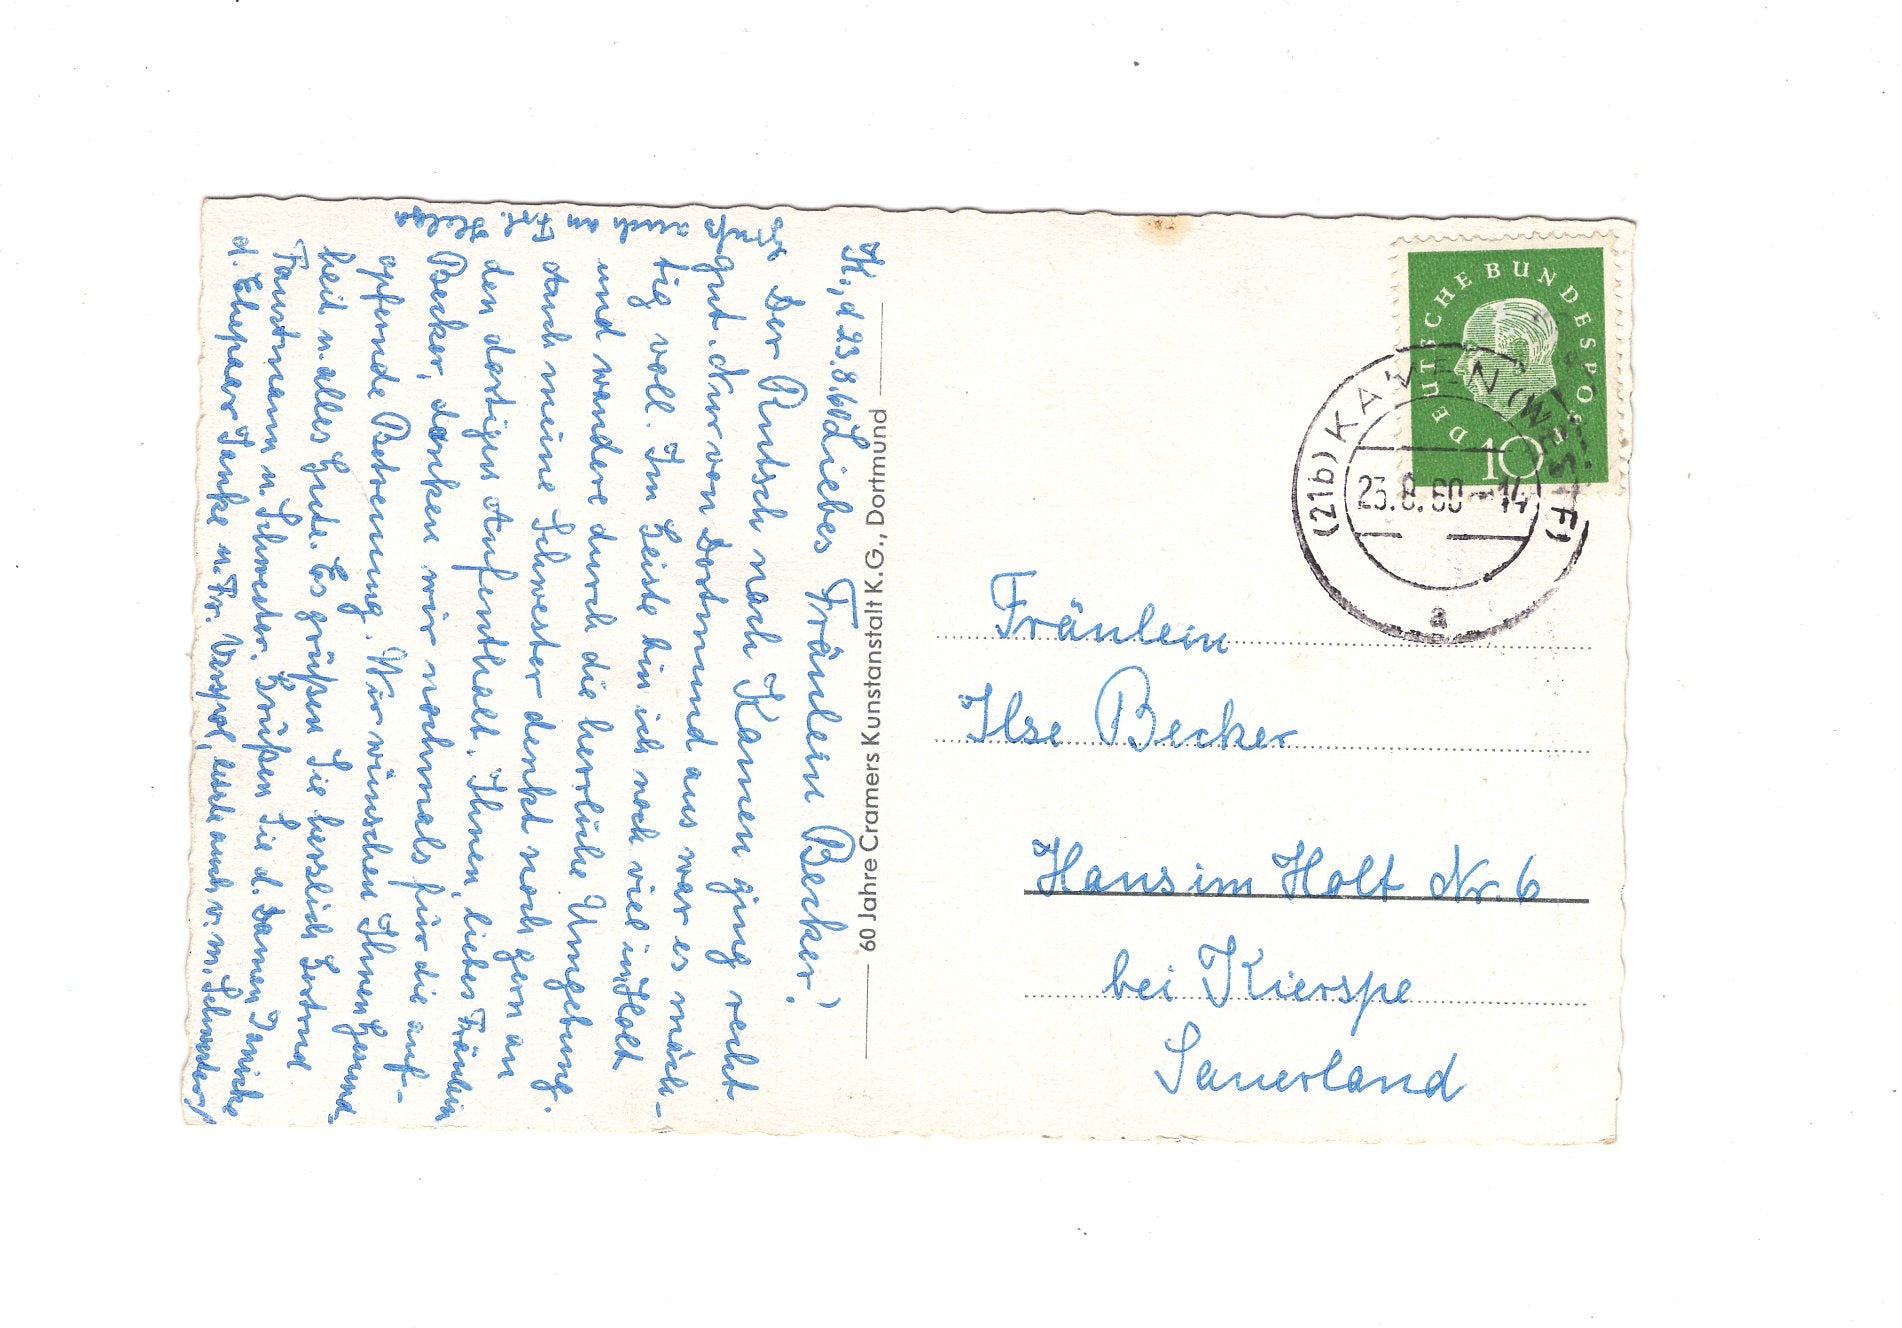 K., d 23.8.60 Liebes Fräulein Becker!
Der Rutsch nach Kamen ging recht
gut. Nur von Dortmund aus war es mäch-
tig voll. Im Geiste bin ich noch viel in Holt
und wandere durch die herrliche Umgebung.
Auch meine Schwester denkt noch gern an
den dortigen Aufenthalt. Ihnen, liebes Fräulein
Becker, danken wir nochmals für die auf-
opfernde Betreuung. Wir wünschen Ihnen Gesund-
heit u. alles Gute. Es grüßen Sie herzlich Gertrud
Faustmann u. Schwester. Grüßen Sie d. Damen
d. Ehepaar Tanke u. Fr. auch v. m. Schwester!
Gruß auch an Frl. Helga
60 Jahre Cramers Kunstanstalt K.G., Dortmund
DEUTSCHE BUNDESPOST
10
(21b) KAMEN (WESTF)
23.8.60-14
a
Fräulein
Ilse Becker
Haus im Holt Nr. 6
bei Kierspe
Sauerland